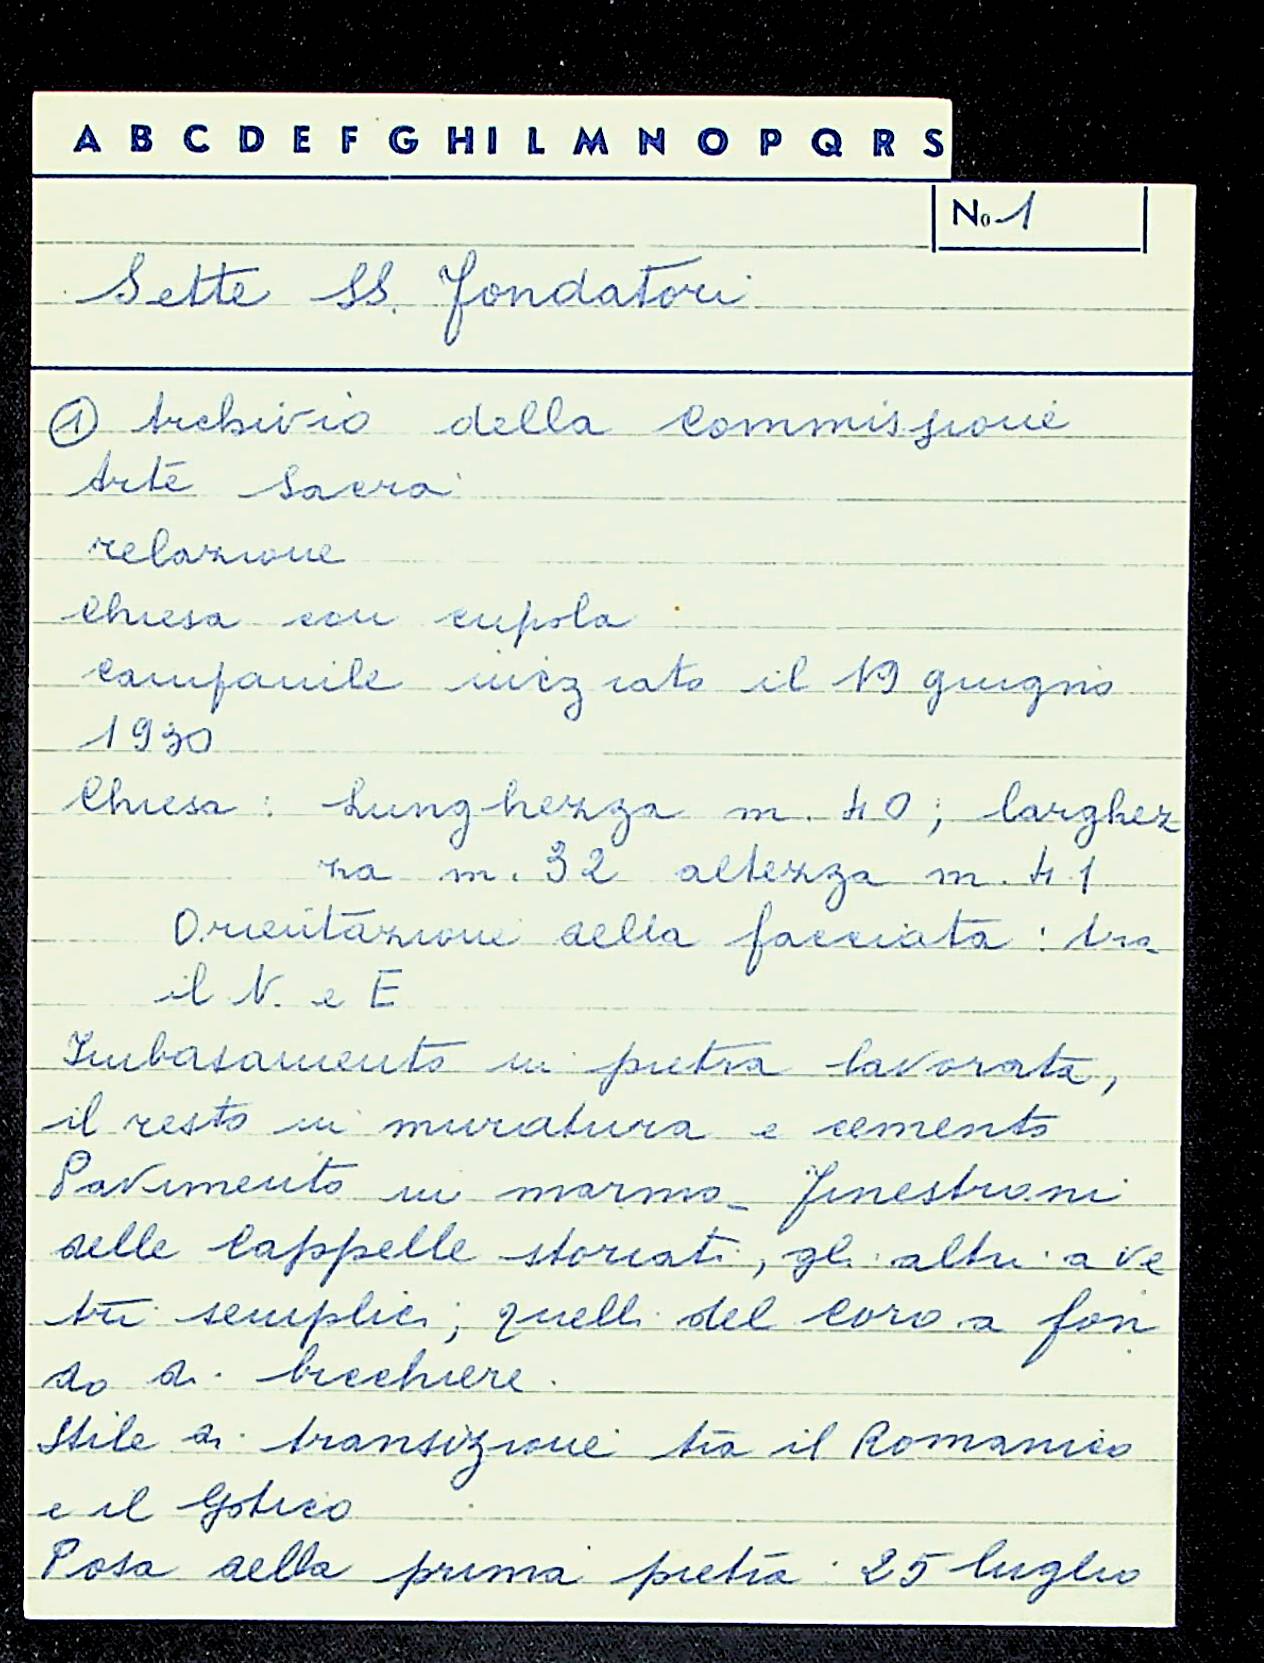 A B C D E F G H I L M N O P Q R S
No 1
Sette SS. Fondatori
① Archivio della Commissione
Arte Sacra
relazione
Chiesa con cupola
Campanile iniziato il 19 giugno
1930
Chiesa: Lunghezza m. 40; larghez
za m. 32 altezza m. 41
Orientazione della facciata: tra
il N. e E
Imbasamento in pietra lavorata,
il resto in muratura e cemento
Pavimento in marmo_ Finestroni
delle Cappelle storiati, gli altri a ve
tri semplici; quelli del Coro a fon
do di bicchiere.
Stile di transizione tra il Romanico
e il Gotico
Posa della prima pietra 25 luglio